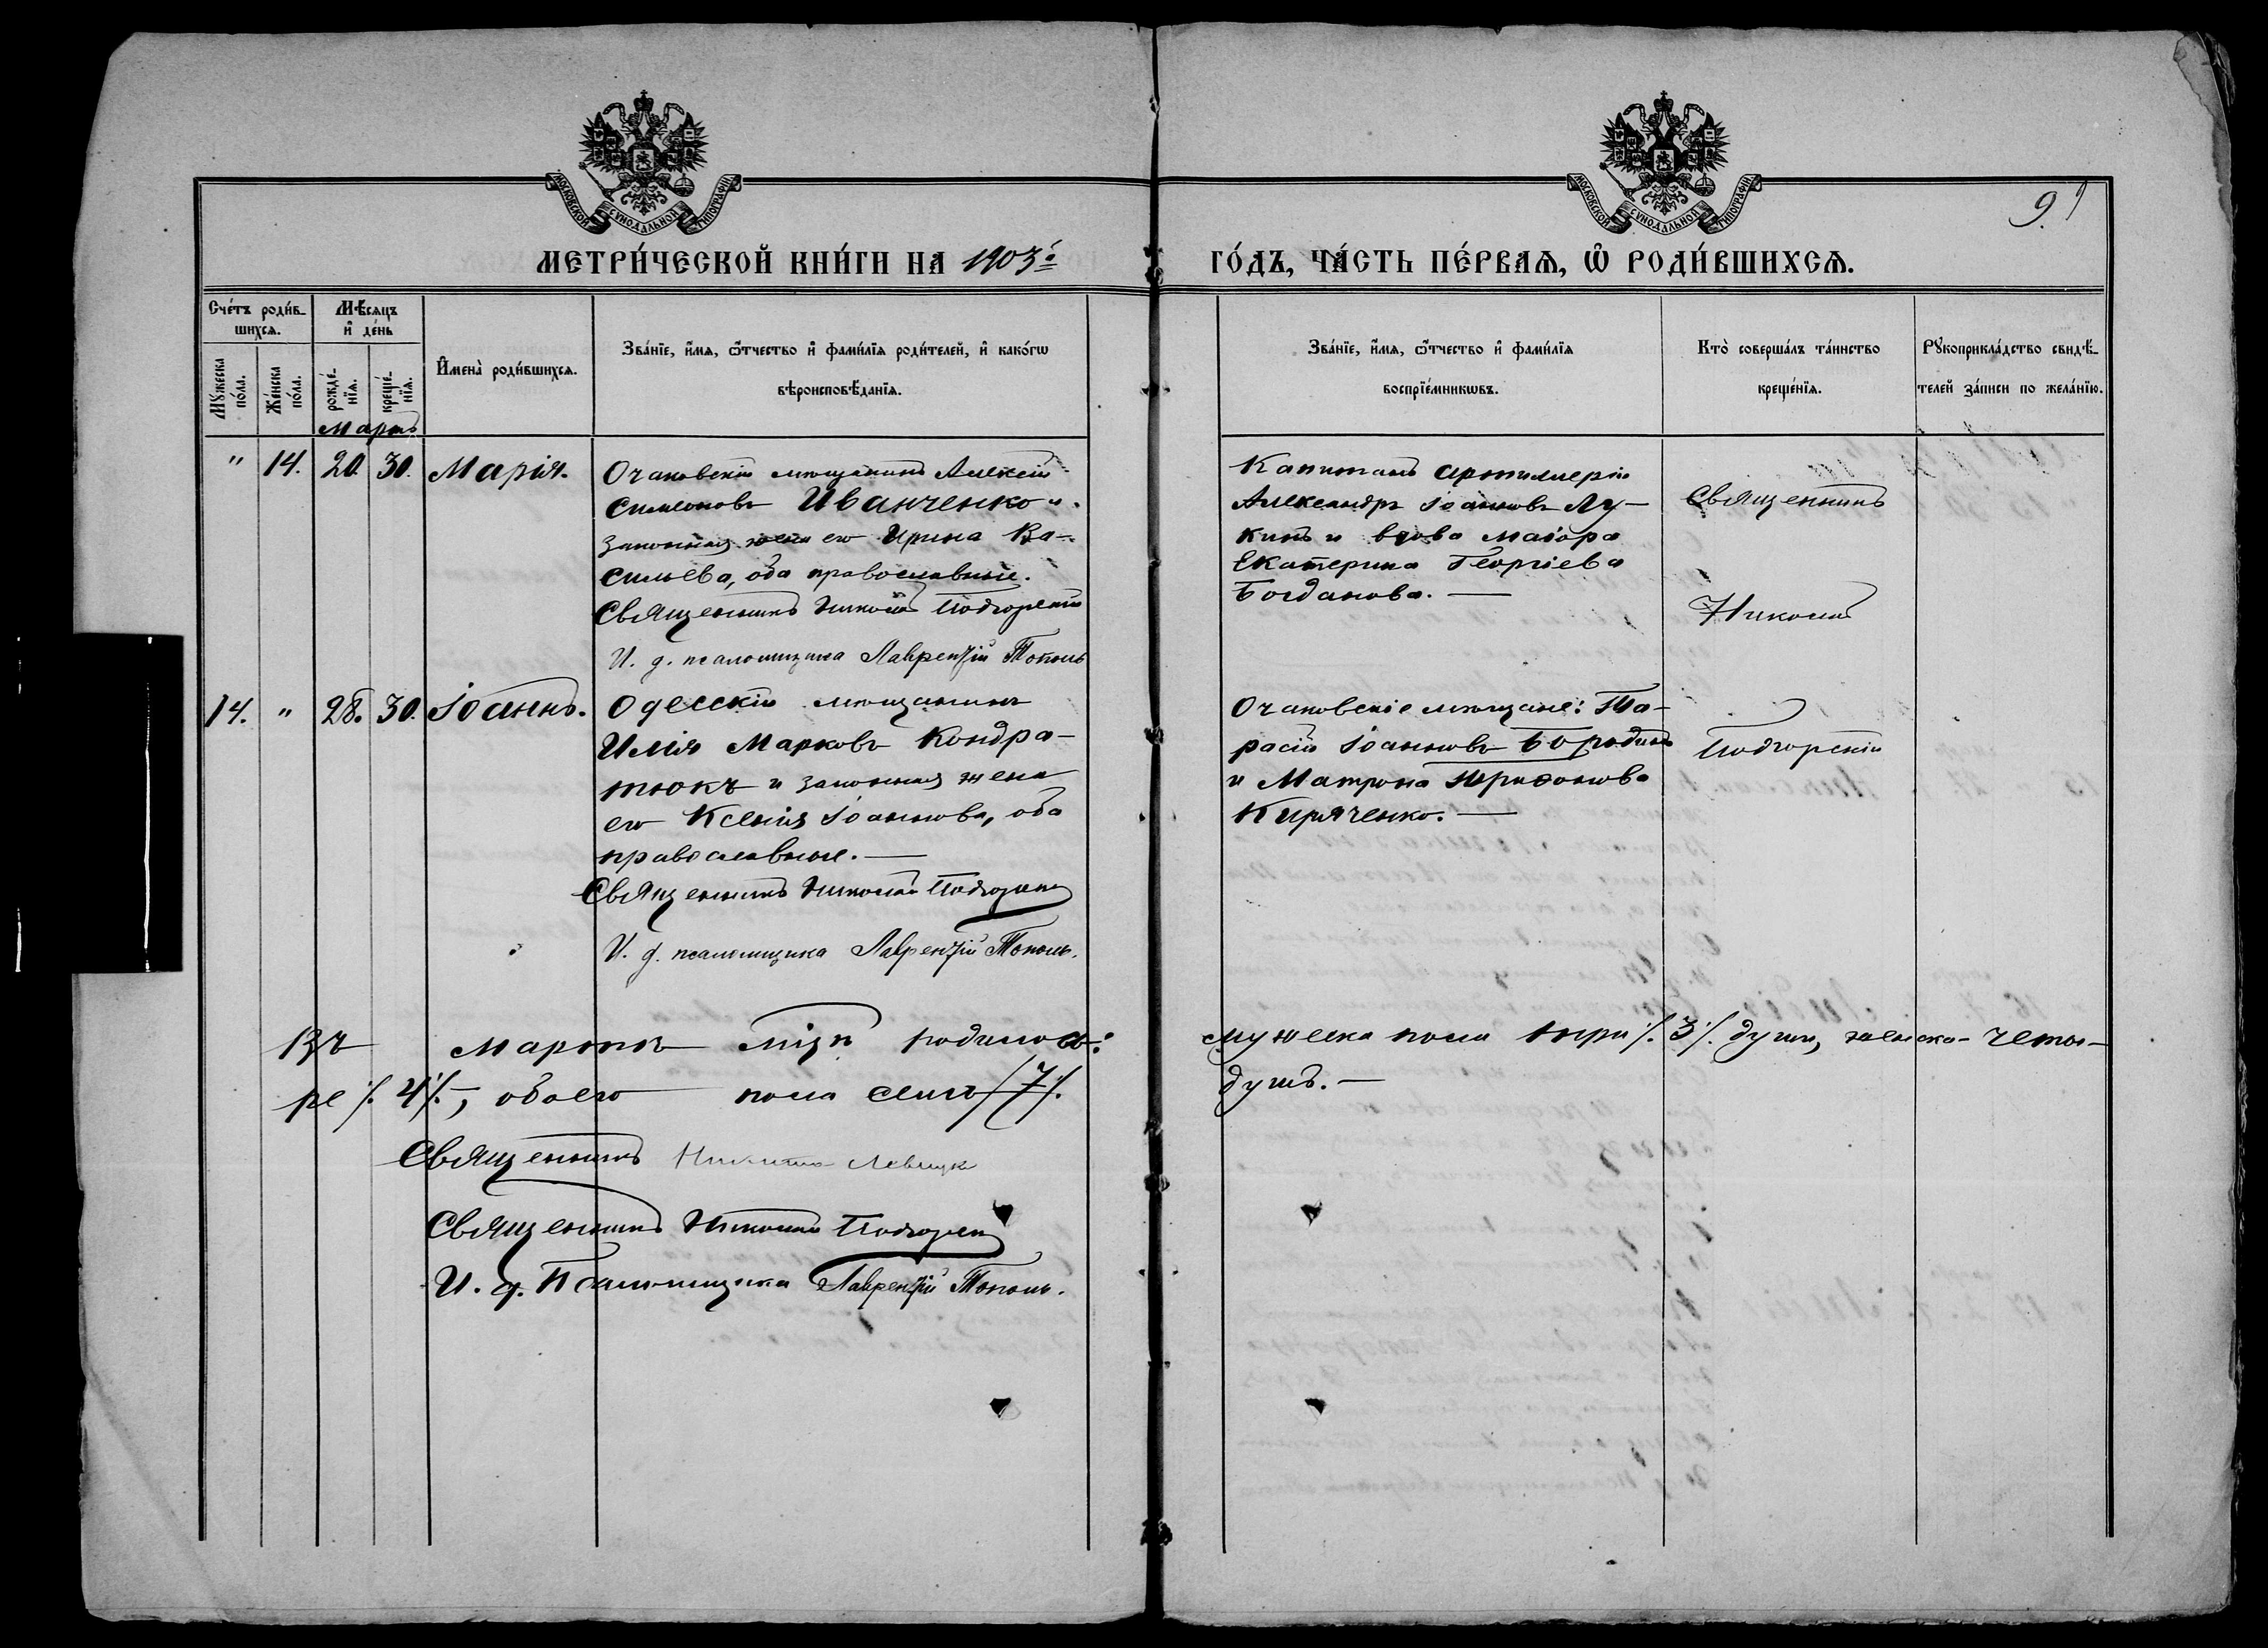 МОСКОВСКОЙ СѴНОДАЛЬНОЙ ТИПОГРАФІИ
МОСКОВСКОЙ СѴНОДАЛЬНОЙ ТИПОГРАФІИ
9
МЕТРИ́ЧЕСКОЙ КНИ́ГИ НА 1903й
ГО́ДЪ, ЧА́СТЬ ПЕ́РВАѦ, Ѡ҆ РОДИ́ВШИХСѦ.
Сче́тъ роди́в-
шихсѧ.
Му́жеска по́ла.
Же́нска по́ла.
Мѣ́сѧцъ
и҆ де́нь
рожде́-нїѧ.
креще́-нїѧ.
И҆мена̀ роди́вшихсѧ.
Зва́нїе, и҆́мѧ, ѻ҆́тчество и҆ фами́лїѧ роди́телей, и҆ како́гѡ
вѣроисповѣ́данїѧ.
Зва́нїе, и҆́мѧ, ѻ҆́тчество и҆ фами́лїѧ
воспрїе́мникѡвъ.
Кто̀ соверша́лъ та́инство
креще́нїѧ.
Рꙋкоприкла́дство свидѣ́-
телей за́писи по жела́нїю.
Мартъ
" 14. 20. 30. Марія.
Очаковскій мѣщанинъ Алексій
Симеоновъ Иванченко и
законная жена его Ирина Ва-
сильева, оба православные.
Священникъ Николай Подгорскій
И. д. псаломщика Лаврентій Тополь
Капитанъ артиллеріи
Александръ Іоанновъ Лу-
кинъ и вдова маіора
Екатерина Георгіева
Богданова. —
Священникъ
Николай
Подгорскій
14. " 28. 30. Іоаннъ.
Одесскій мѣщанинъ
Илія Марковъ Кондра-
тюкъ и законная жена
его Ксенія Іоаннова, оба
православные. —
Священникъ Николай Подгорскій
И. д. псаломщика Лаврентій Тополь.
Очаковскіе мѣщане: Та-
расій Іоанновъ Бородинъ
и Матрона
Киряченко. —
Въ мартѣ м-цѣ родилось: мужеска пола три /. 3 /. души, женска - четы-
ре /. 4 /. -, обоего пола семь /. 7 /. душъ. —
Священникъ Никита Левицкі
Священникъ Николай Подгорскій
И. д. Псаломщика Лаврентій Тополь.